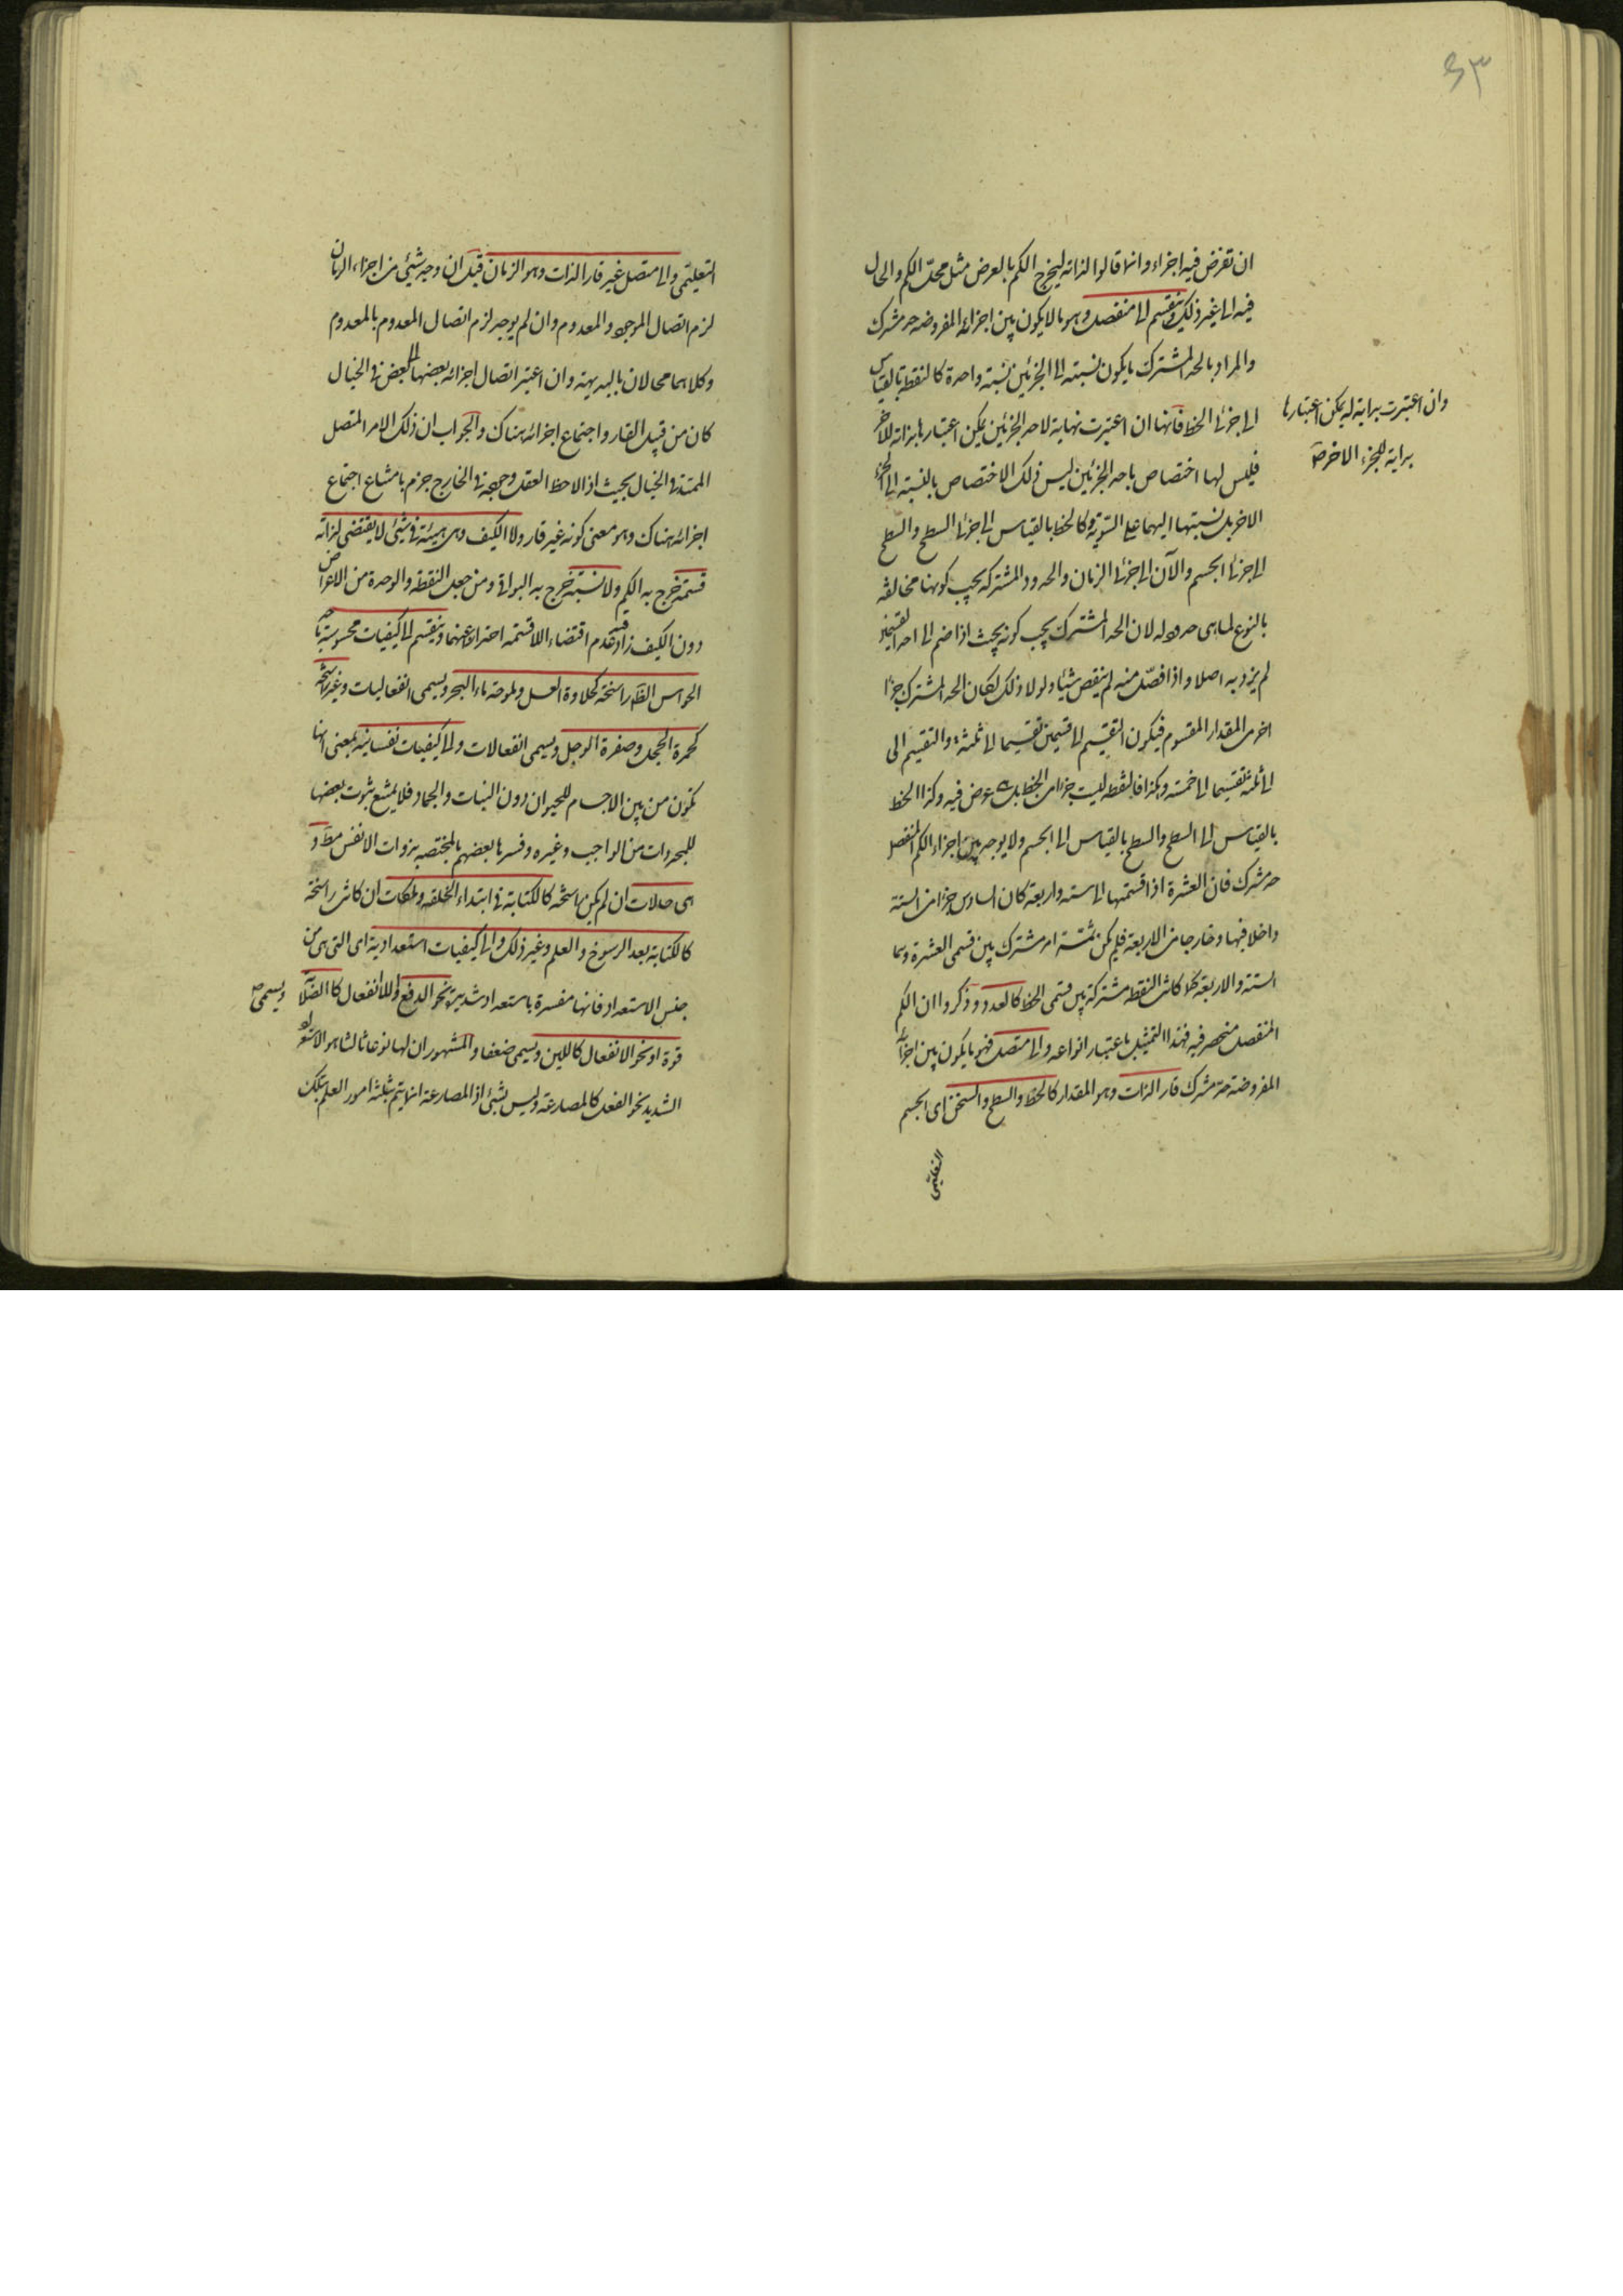 ۶۳
ان تفرض فيه اجزاء وانما قالوا لذاته ليخرج الكم بالعرض مثل محل الكم والحال
فيه الى غير ذلك وينقسم الى منفصل وهو ما لا يكون بين اجزائه المفروضه حد مشترك
والمراد بالحد المشترك ما يكون نسبته الى الجزئين نسبة واحدة كالنقطة بالقياس
الى جزئى الخط فانها ان اعتبرت نهاية لاحد الجزئين يمكن اعتبارها بداية للاخر
وان اعتبرت بداية له يمكن اعتبارها
بداية للجزء الاخر صح
فليس لها اختصاص باحد الجزئين ليس ذلك الاختصاص بالنسبة الى الجزء
الاخر بل نسبتها اليهما على السوية وكالخط بالقياس الى جزئى السطح والسطح
الى جزئى الجسم والآن الى جزئى الزمان والحدود المشتركة يجب كونها مخالفة
بالنوع لما هى حدود له لان الحد المشترك يجب كونه بحيث اذا ضم الى احد القسمين
لم يزد به اصلا واذا فصل منه لم ينقص شيئا ولولا ذلك لكان الحد المشترك جزءا
اخر من المقدار المقسوم فيكون التقسيم الى قسمين تقسيما الى ثلثة والتقسيم الى
الى ثلثة تقسيما الى خمسة وهكذا فالنقطة ليست جزءا من الخط بل هى عرض فيه وكذا الخط
بالقياس الى السطح والسطح بالقياس الى الجسم ولا يوجد بين اجزاء الكم المنفصل
حد مشترك فان العشرة اذا قسمتها الى ستة واربعة كان السادس جزءا من الستة
داخلا فيها وخارجا من الاربعة فلم يكن ثمة امر مشترك بين قسمى العشرة وهما
الستة والاربعة كما كانت النقطة مشتركة بين قسمى الخط كالعدد وذكروا ان الكم
المنفصل منحصر فيه فهذا التمثيل باعتبار انواعه والى متصل فهو ما يكون بين اجزائه
المفروضة حد مشترك قار الذات وهو المقدار كالخط والسطح والثخن اى الجسم
التعليمى
التعليمى والى متصل غير قار الذات وهو الزمان قيل ان وجد شيئ من اجزاء الزمان
لزم اتصال الموجود والمعدوم وان لم يوجد لزم اتصال المعدوم بالمعدوم
وكلاهما محالان بالبديهة وان اعتبر اتصال اجزائه بعضها الى بعض فى الخيال
كان من قبيل القار واجتماع اجزائه هناك والجواب ان ذلك الامر المتصل
الممتد فى الخيال بحيث اذا لاحظ العقل وجوده فى الخارج جزم بامتناع اجتماع
اجزائه هناك وهو معنى كونه غير قار ولا الكيف وهى هيئة فى شيئ لا يقتضى لذاته
قسمة خرج به الكم ولا نسبة خرج به البواقى ومن جعل النقطة والوحدة من الاعراض
دون الكيف زاد قيد عدم اقتضاء اللاقسمة احترازا عنهما وينقسم الى كيفيات محسوسة باحد
الحواس الظاهرة راسخة كحلاوة العسل وملوحة ماء البحر ويسمى انفعاليات وغير راسخة
كحمرة الخجل وصفرة الوجل ويسمى انفعالات والى كيفيات نفسانية بمعنى انها
تكون من بين الاجسام للحيوان دون النبات والجماد فلا يمتنع ثبوت بعضها
للمجردات من الواجب وغيره وفسرها بعضهم بالمختصة بذوات الانفس مط و
هى حالات ان لم يكن راسخة كالكتابة فى ابتداء الخلقة وملكات ان كانت راسخة
كالكتابة بعد الرسوخ والعلم وغير ذلك والى كيفيات استعدادية اى التى هى من
جنس الاستعداد فانها مفسرة باستعداد شديد نحو الدفع واللاانفعال كالصلابة
ويسمى صح
قوة او نحو الانفعال كاللين ويسمى ضعفا والمشهور ان لها نوعا ثالثا هو الاستعداد
الشديد نحو الفعل كالمصارعة وليس بشيئ اذ المصارعة انما يتم بثلثة امور العلم بتلك